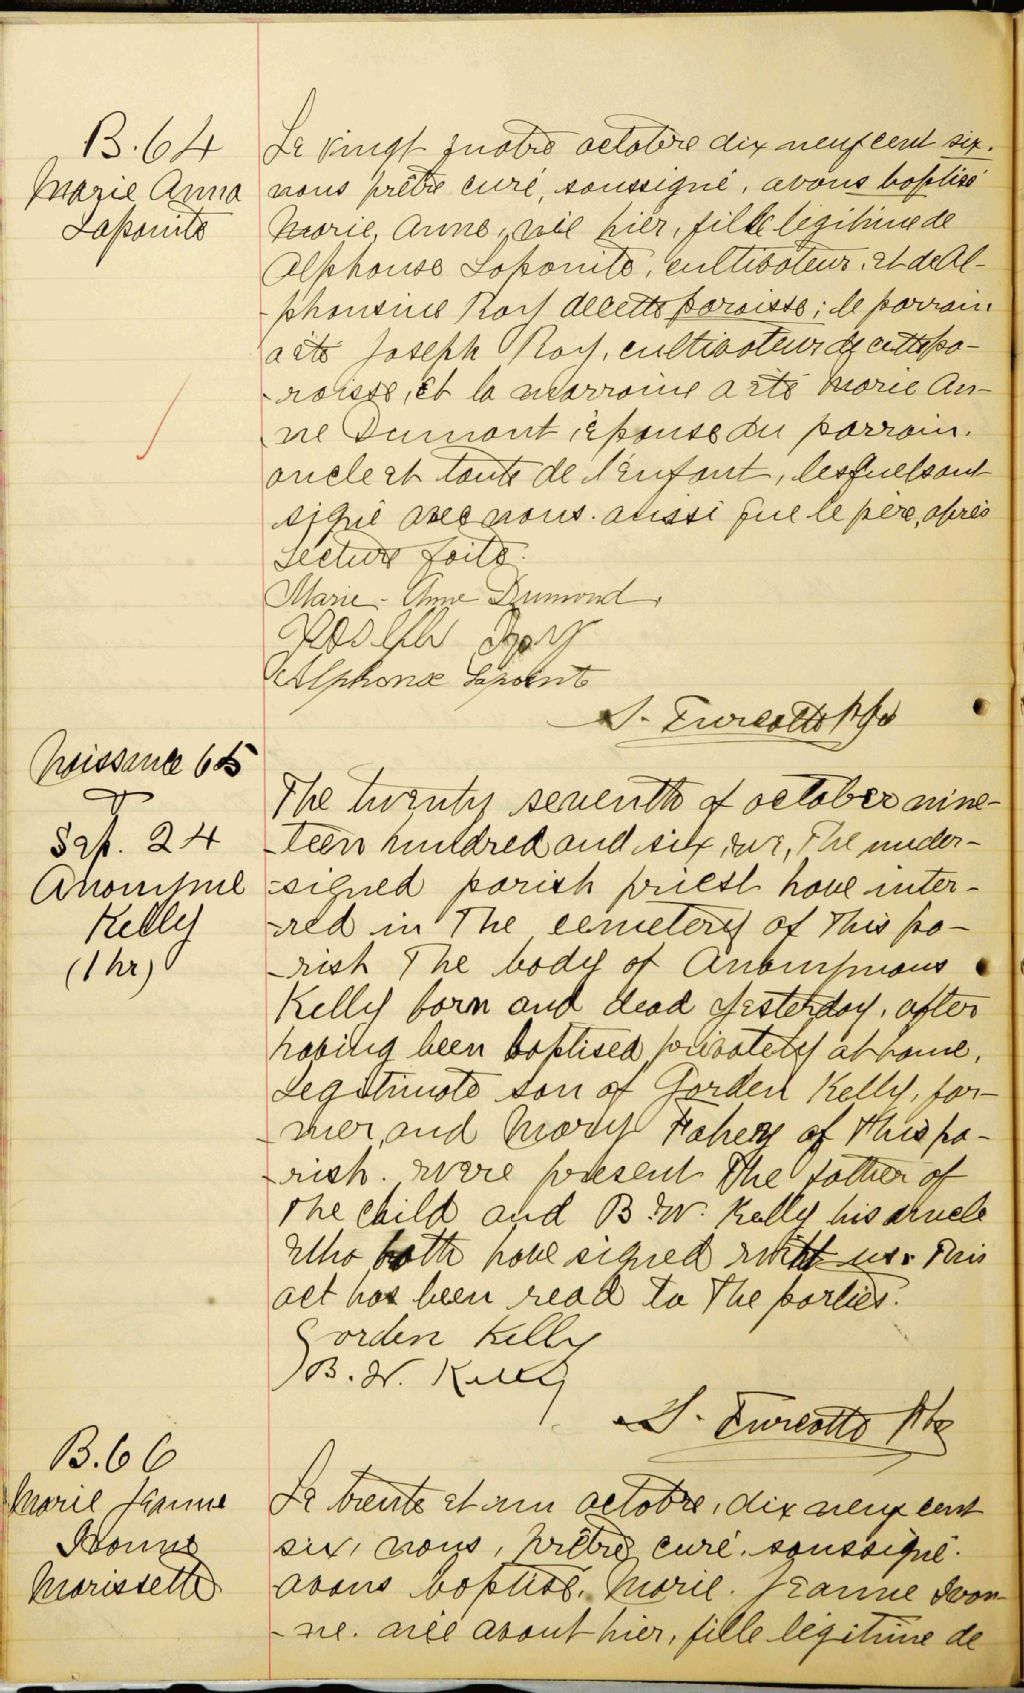 B. 64
Marie Anna
Lapointe
Le vingt quatre octobre dix neuf cent six.
nous prêtre curé, soussigné, avons baptisé
Marie, Anne, née hier, fille légitime de
Alphonse Lapointe, cultivateur, et de Al-
-phonsine Roy de cette paroisse; le parrain
a été Joseph Roy, cultivateur de cette pa-
-roisse, et la marraine a été Marie An-
ne Dumont, épouse du parrain.
oncle et tante de l'enfant, lesquels ont
signé avec nous. aussi que le père, après
lecture faite.
Marie-Anne Dumond,
Joseph Roy
Alphonse Lapointe
S. Turcotte Ptre
Naissance 65
&
Sep. 24
Anonyme
Kelly
(1 hr)
The twenty seventh of october nine-
-teen hundred and six, we, The under-
-signed parish priest have inter-
-red in The cemetery of This pa-
-rish The body of Anonymous
Kelly born and dead yesterday, after
having been baptised, privately at home,
Legitimate son of Gorden Kelly, far-
-mer, and Mary Fahey of This pa-
-rish. were present The father of
The child and B. W. Kelly his uncle
Who both have signed with us. This
act has been read to The parties.
Gorden Kelly
B. W. Kelly
S. Turcotte Ptre
B. 66
Marie Jeanne
Ivonne
Morissette
Le trente et un octobre, dix neuf cent
six, nous, prêtre curé. soussigné.
avons baptisé. Marie. Jeanne Ivon-
-ne. née avant hier, fille légitime de